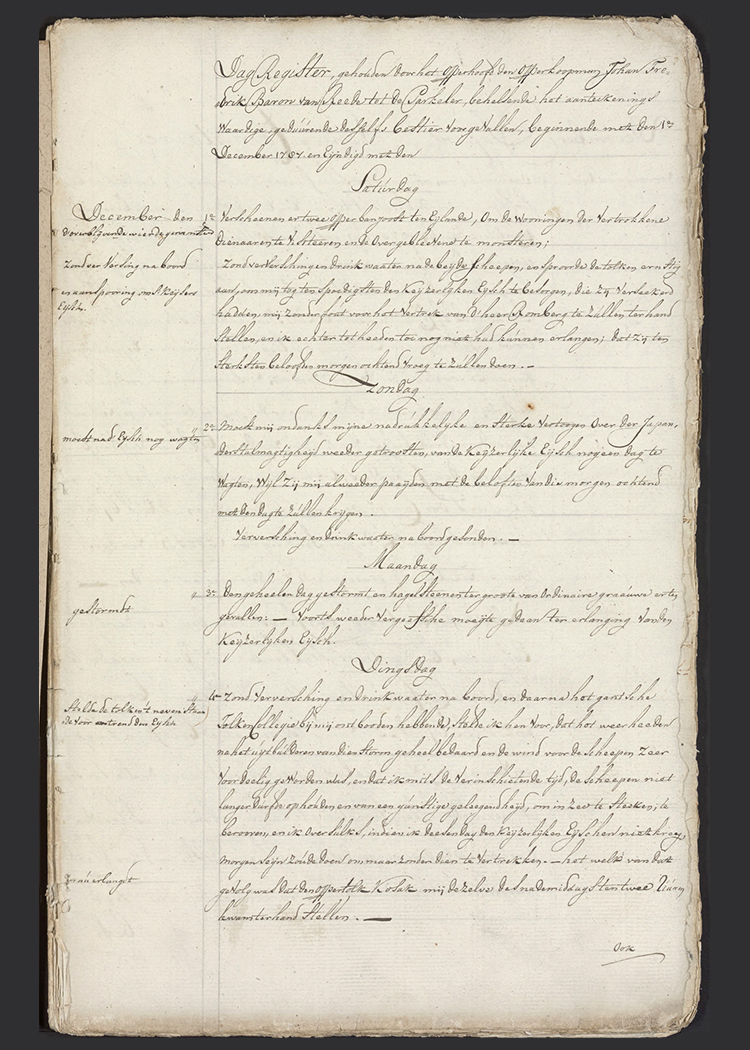 Dag Register, gehouden door het Opperhoofd den Opperkoopman Johan Fre-
drik Baron van Reede tot de Parkeler, behelsende het aanteekenings
Waardige, geduurende desselfs bestier voorgevallen, beginnende met den 1en
December 1787. en Eyndigd met den
Saturdag
December den 1e Verscheenen er twee opperbanjoost ten Eylande, Om de Wooningen der Vertrokkene
Dienaaren te Visiteeren en de Overgeblevene te monsteren;
de overblyvende wierde gemonsterd
Zond verversing na boord
Zond ververschingen drink waater na de beyde scheepen, en spoorde de tolken ernstig
en aanspooring om 's Keysers
Eysch.
aan, om mij tog ten spoedigsten den Keyzerlyken Eysch te besorgen, die Zy Verseekerd
hadden, mij zonder fout voor het Vertrek van d'heer Romberg te Zullen ter hand
Stellen, en ik echter tot heeden toe nog niet had kunnen erlangen; dat Zij ten
Sterksten beloofden morgen ochtend vroeg te Zullen doen. —
Zondag
moest na d' Eysch nog wagten
" 2e Moest mij ondanks mijne nadrukkelyke en Sterke Vertoogen Over der Japan,
ders talmagtigheyd weeder getroosten, van de Keyzerlyke Eysch nog een dag te
Wagten, Wyl Zij mij alweeder paeyden met de beloften Van die morgen ochtend
met den dag te Zullen krygen.
Ververschingen drink waater na boord gesonden. —
Maandag
gestormdt
" 3e Den geheelen dag gestormt en hagelsteenen ter groote van Ordinaire graeuwe erten
gevallen: — Voorts weeder Vergeefsche moeyte gedaan ter erlanging Van den
Keyzerlyken Eysch.
Dingsdag
Stelde de tolken 't nevenstaan
de voor omtrend den Eysch
" 4e Zond Verversching en drink waater na boord, en daar na het gantsche
Tolken Collegie bij mij ontbooden hebbende, Stelde ik hen Voor, dat het weer heeden
na het uytbulderen van dien Storm geheel bedaard en de wind voor de Scheepen Zeer
Voordeelig geworden was, en dat ik mits de Verinschietende tyd, de Scheepen niet
langer durfde ophouden en van een gunstige geleegendheyd, om in Zee te Steeken, te
berooven, en ik Oversulks, indien ik deesen dag den Keyzerlyken Eysch en niet kreeg,
morgen Seyn Zoude doen om maar zonder dien te Vertrekken. — het welk van dat
en nu erlangt
gevolg was dat den oppertolk Kosak mij dezelve des nademiddags ten twee Uuren
kwam ter hand Stellen. —
Ook